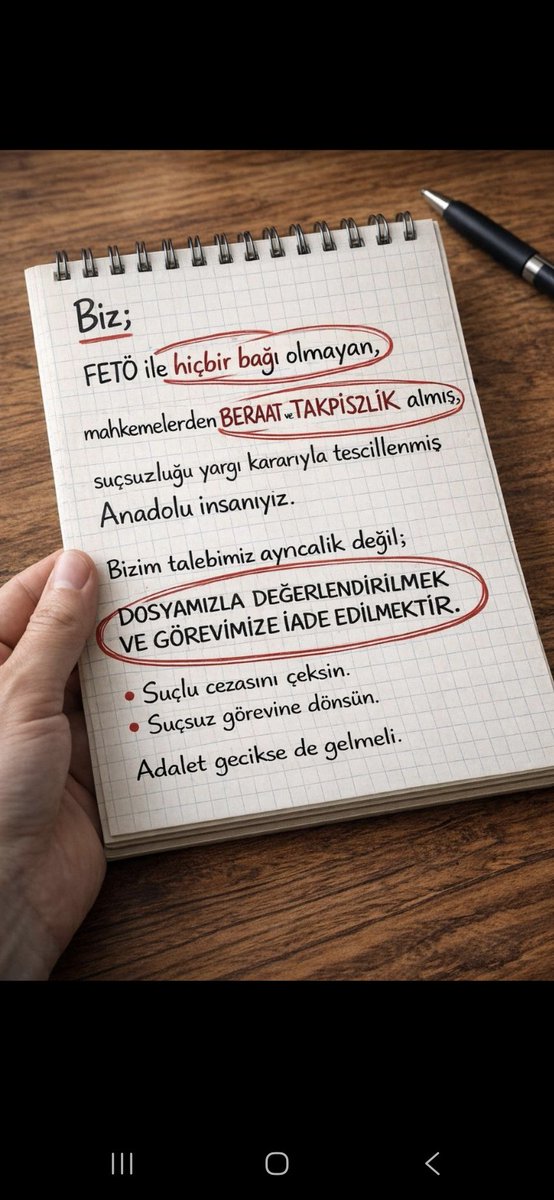 Biz;
FETÖ ile hiçbir bağı olmayan,
mahkemelerden BERAAT ve TAKPİSZLİK almış,
suçsuzluğu yargı kararıyla tescillenmiş
Anadolu insanıyız.
Bizim talebimiz ayncalik değil;
DOSYAMIZLA DEĞERLENDİRİLMEK
VE GÖREVİMİZE İADE EDİLMEKTİR.
• Suçlu cezasını çeksin.
• Suçsuz görevine dönsün.
Adalet gecikse de gelmeli.